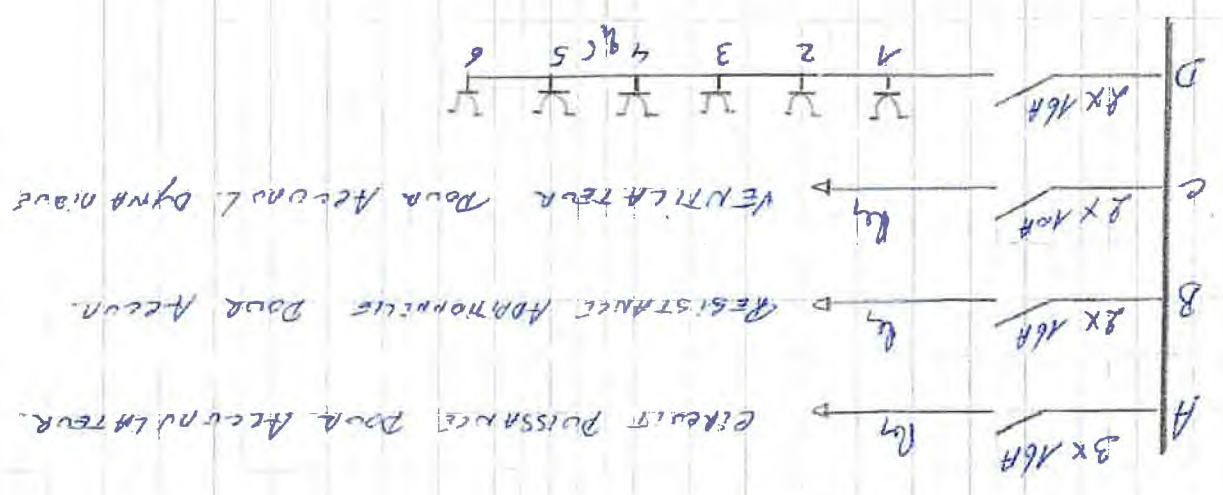 A 3 x 16A CIRCUIT PUISSANCE POUR ACCUMULATEUR.
B 2 x 16A RESISTANCE ADDITIONNELLE POUR ACCUM.
C 2 x 10A VENTILATEUR POUR ACCUMUL. DYNAMIQUE
D 2 x 16A 1 2 3 4 5 6